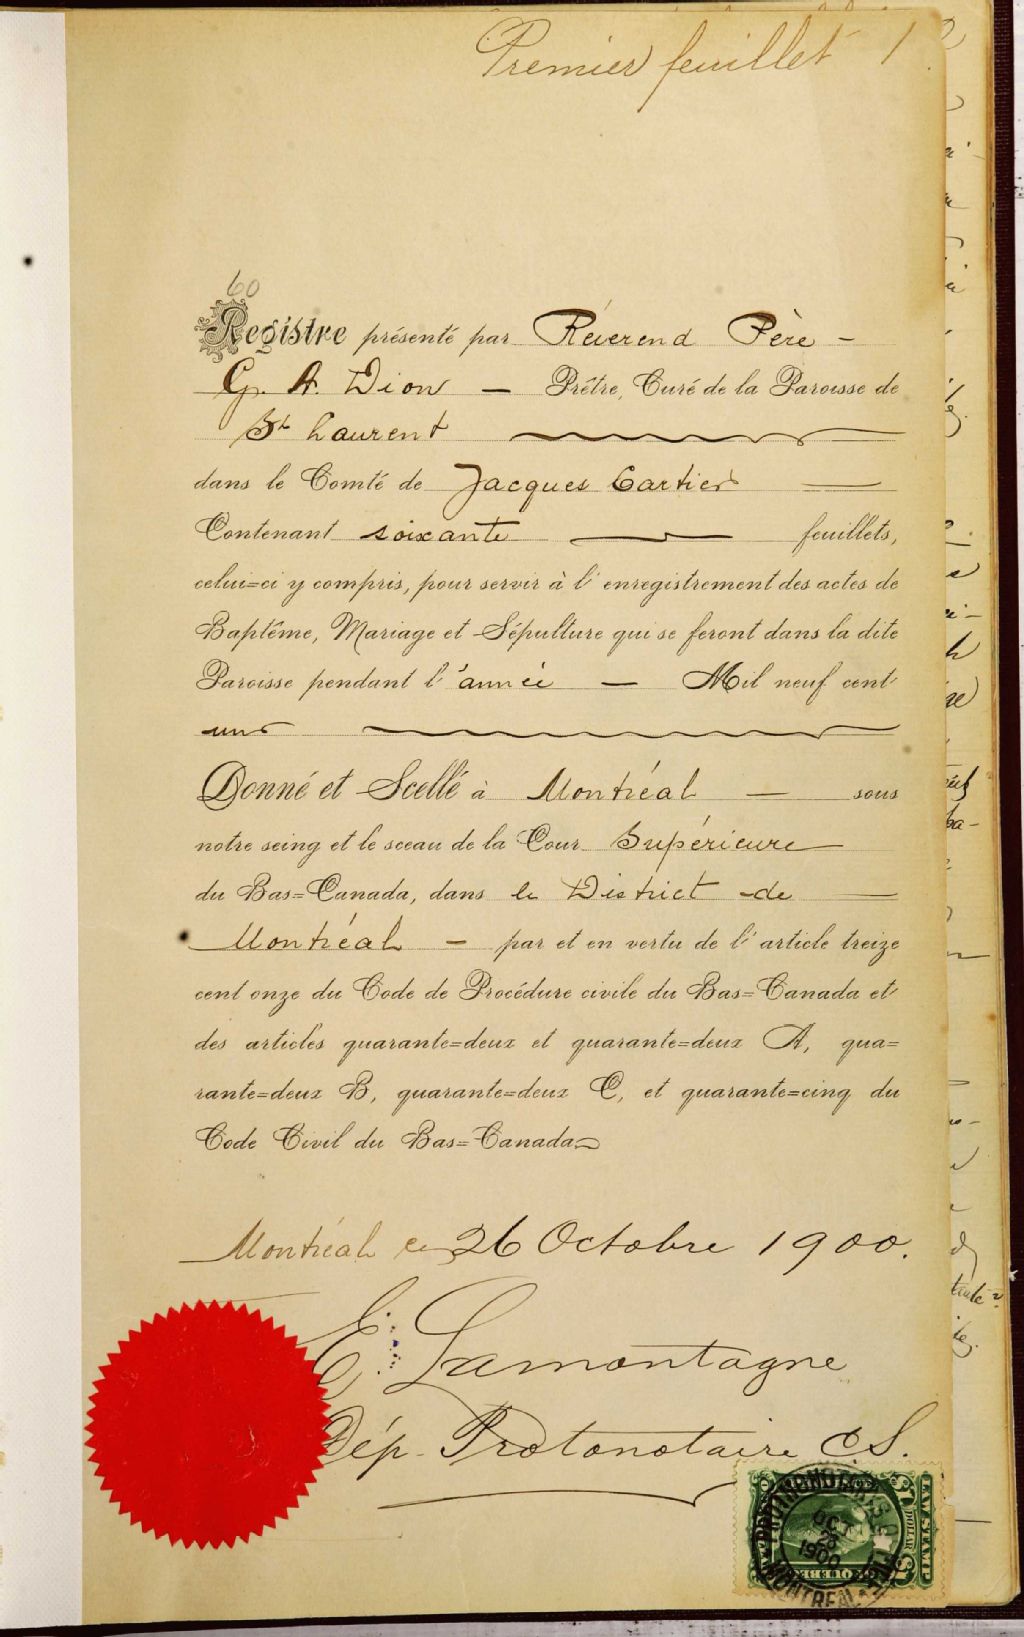 Premier feuillet 1
60
Registre présenté par Révérend Père -
G. A. Dion — Prêtre, Curé de la Paroisse de
St Laurent
dans le Comté de Jacques Cartier —
Contenant soixante — feuillets,
celui=ci y compris, pour servir à l'enregistrement des actes de
Baptême, Mariage et Sépulture qui se feront dans la dite
Paroisse pendant l'année — Mil neuf cent
un
Donné et Scellé à Montréal — sous
notre seing et le sceau de la Cour Supérieure
du Bas=Canada, dans le District de —
Montréal - par et en vertu de l'article treize
cent onze du Code de Procédure civile du Bas=Canada et
des articles quarante=deux et quarante=deux A, qua=
rante=deux B, quarante=deux C, et quarante=cinq du
Code Civil du Bas=Canada
Montréal ce 26 Octobre 1900.
E. Lamontagne
Dép. Protonotaire C.S.
LAW STAMP
DOLLAR
QUEBEC
OCT
1900
MONTREAL